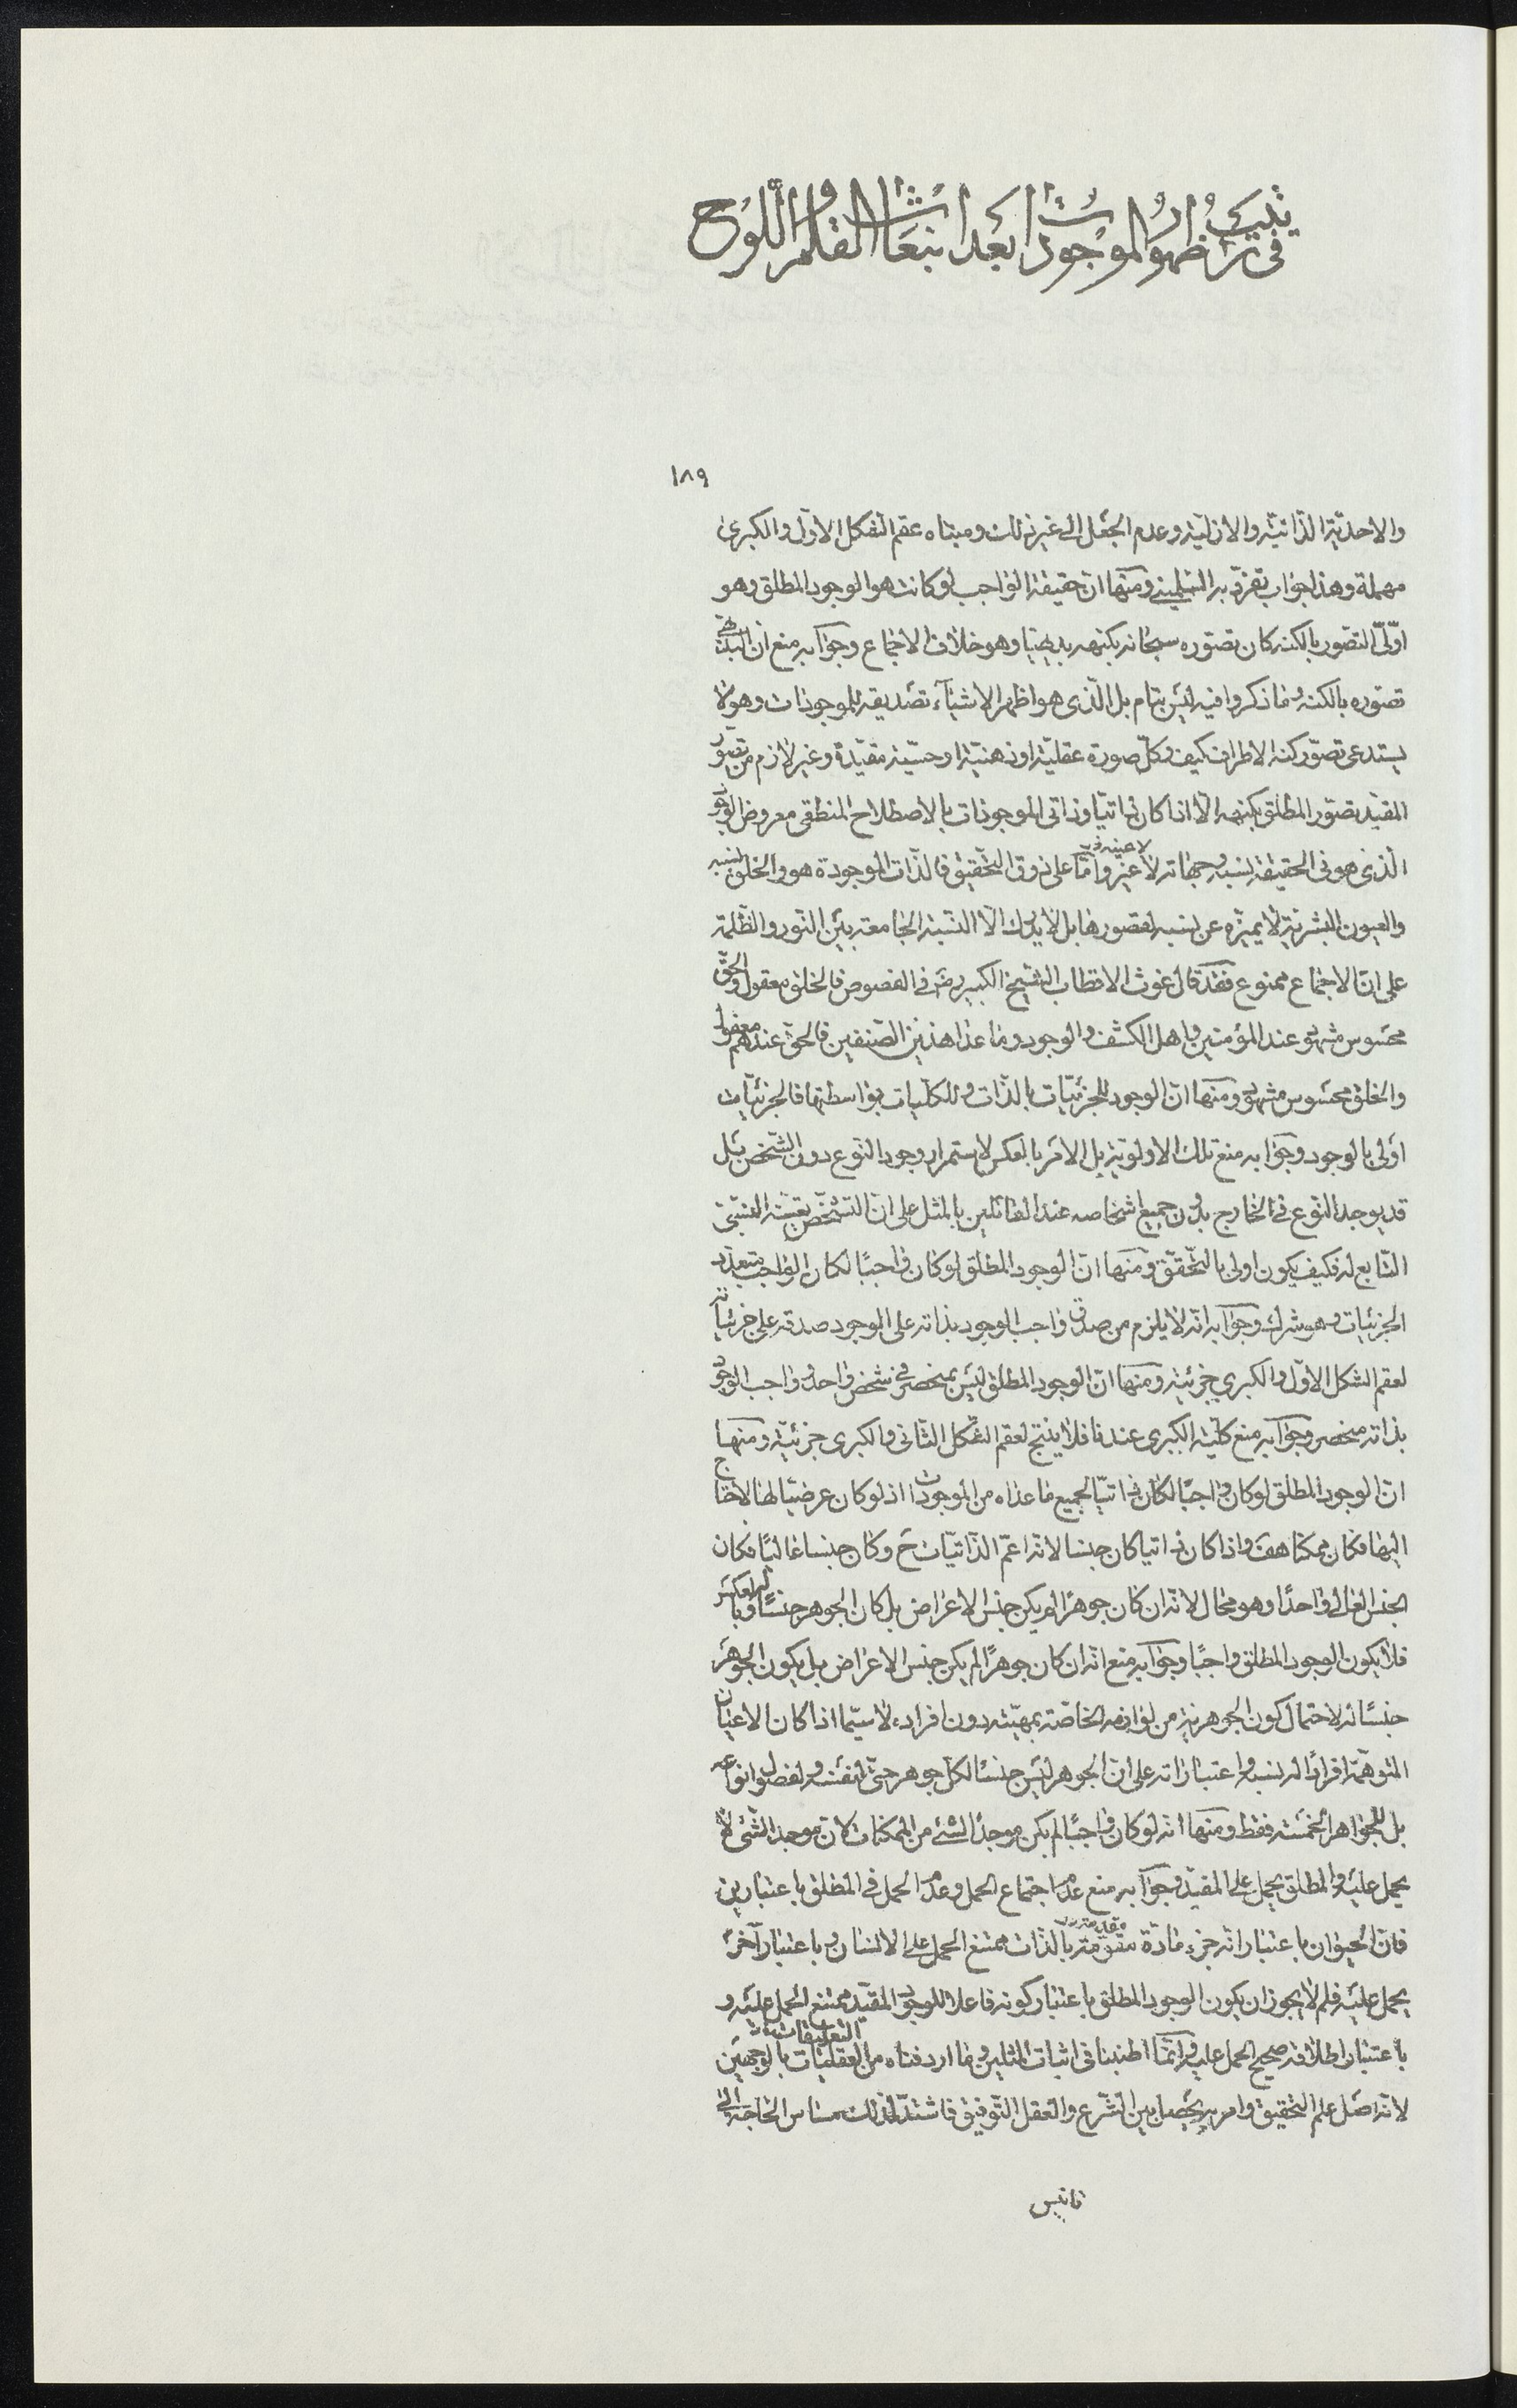 في ترتيب ظهور الموجودات بعد انبعاث القلم واللوح
١٨٩
والاحديّة الذّاتيّة والازليّة وعدم الجعل الى غير ذلك ومبناه عقم الشكل الاوّل والكبرى
مهملة وهذا جواب تفرّد به ومنها انّ حقيقة الواجب لو كانت هو الوجود المطلق وهو
اوّلىّ التصوّر بالكنه كان تصوّره سبحانه بكنهه بديهيّا وهو خلاف الاجماع وجوابه منع انّ البديهىّ
تصوّره بالكنه وما ذكروا فيه ليس بتام بل الّذى هو اظهر الاشيآء تصديقه للموجودات وهو لا
يستدعى تصوّر كنه الاطراف كيف وكلّ صورة عقليّة او ذهنيّة او حسّيّة مقيّدة وغير لازم من تصوّر
المقيّد تصوّر المطلق بكنهه الّا اذا كان ذاتيّا وذاتى الموجودات بالاصطلاح المنطقى معروض الوجود
الذى هو فى الحقيقة نسبه وجهاته لا عينه وامّا على ذوق التّحقيق فالذّات الموجودة هو والخلق نسبه
لا عينه
والعيون البشريّة لا يميّزه عن نسبه لقصورها بل لا يدرك الّا النّسبة الجامعة بين النّور والظّلمة
على انّ الاجماع ممنوع فقد قال غوث الاقطاب الشّيخ الكبير رض فى الفصوص فالخلق معقول والحقّ
محسوس مشهود عند المؤمنين واهل الكشف والوجود وما عدا هذين الصّنفين فالحقّ عندهم معقول
والخلق محسوس مشهود ومنها انّ الوجود للجزئيّات بالذّات وللكلّيات بواسطتها فالجزئيّات
اولى بالوجود وجوابه منع تلك الاولويّة بل الامر بالعكس لاستمرار وجود النّوع دون الشّخص بل
قد يوجد النّوع فى الخارج بدون جميع اشخاصه عند القائلين بالمثل على انّ التشخّص تعيّنه النسبىّ
التّابع له فكيف يكون اولى بالتّحقّق ومنها انّ الوجود المطلق لو كان واجبًا لكان الواجب متعدّد
الجزئيات وهو شرك وجوابه انّه لا يلزم من صدق واجب الوجود بذاته على الوجود صدقه على جزئياته
لعقم الشكل الاوّل والكبرى جزئيّة ومنها انّ الوجود المطلق ليس بمنحصر فى شخص واحد وواجب الوجود
بذاته منحصر وجوابه منع كليّة الكبرى عندنا فلا ينتج لعقم الشكل الثّانى والكبرى جزئيّة ومنها
انّ الوجود المطلق لو كان واجبًا لكان ذاتيّا لجميع ما عداه من الموجودات اذ لو كان عرضيّا لها لاحتاج
اليها فكان ممكنا هف واذا كان ذاتيا كان جنسا لانّه اعمّ الذّاتيّات ح وكان جنسا عاليًا فكان
الجنس العالى واحدًا وهو محال لانّه ان كان جوهرًا لم يكن جنس الاعراض بل كان الجوهر جنسًا له وبالعكس
فلا يكون الوجود المطلق واجبًا وجوابه منع انّه ان كان جوهرًا لم يكن جنس الاعراض بل يكون الجوهر
جنسًا له لاحتمال كون الجوهريّة من لوازمه الخاصّة بمهيّته دون افراده لا سيّما اذا كان الاعيان
المتوهّمة افرادًا له نسبه واعتباراته على انّ الجوهر ليس جنسًا لكلّ جوهر حتىّ لنفسه ولفصول انواعه
بل للجواهر الخمسة فقط ومنها انّه لو كان واجبًا لم يكن موجدًا لشئ من الممكنات لانّ موجد الشّئ لا
يحمل عليه والمطلق يحمل على المقيّد وجوابه منع عدم اجتماع الحمل وعدم الحمل فى المطلق باعتبارين
فانّ الحيوان باعتبار انّه جزء مادّة متقوّمة بالذّات ممتنع الحمل على الانسان وباعتبار آخر
يحمل عليه فلم لا يجوز ان يكون الوجود المطلق باعتبار كونه فاعلا للوجود المقيّد ممتنع الحمل عليه و
باعتبار اطلاقه صحيح الحمل عليه وانّما اطنبنا فى اثبات المثلين وما اردفناه من العقليّات بالوجهين
التعليقات
لانّه اصل علم التّحقيق وامر به يحصل بين الشّرع والعقل التّوفيق فاشتدّ لذلك مساس الحاجة الى
تانيس